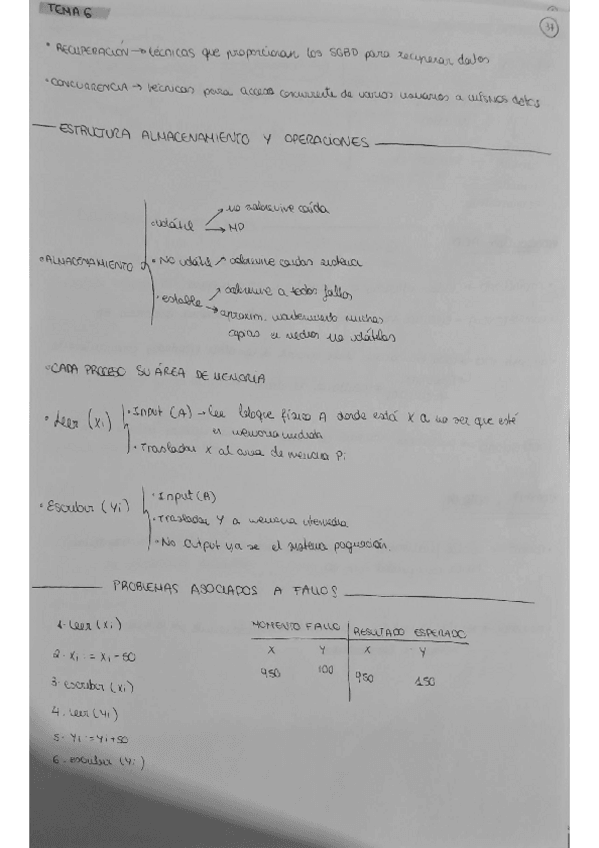 TEMA 6
37
• RECUPERACIÓN → técnicas que proporcionan los SGBD para recuperar datos
• CONCURRENCIA → técnicas para acceso concurrente de varios usuarios a mismos datos
ESTRUCTURA ALMACENAMIENTO Y OPERACIONES
no sobrevive caída
• volátil
MP
• ALMACENAMIENTO
• NO volátil sobrevive caidas sistema
sobrevive a todos fallos
• estable
aproxim. manteniendo muchas
copias en medios no volátiles
• CADA PROCESO SU ÁREA DE MEMORIA
• Leer (xi) • Input (A) → Lee bloque físico A donde está X a no ser que esté
en memoria
• Trasladar X al area de memoria Pi
• Input (A)
• Escribir (Yi)
• Trasladar Y a memoria intermedia
• No output ya se el sistema paginación.
PROBLEMAS ASOCIADOS A FALLOS
1. Leer (Xi)
MOMENTO FALLO RESULTADO ESPERADO
2. Xi := Xi - 50
X Y X Y
950 100 950 150
3. escribir (Xi)
4. Leer (Yi)
5. Yi := Yi + 50
6. escribir (Yi)